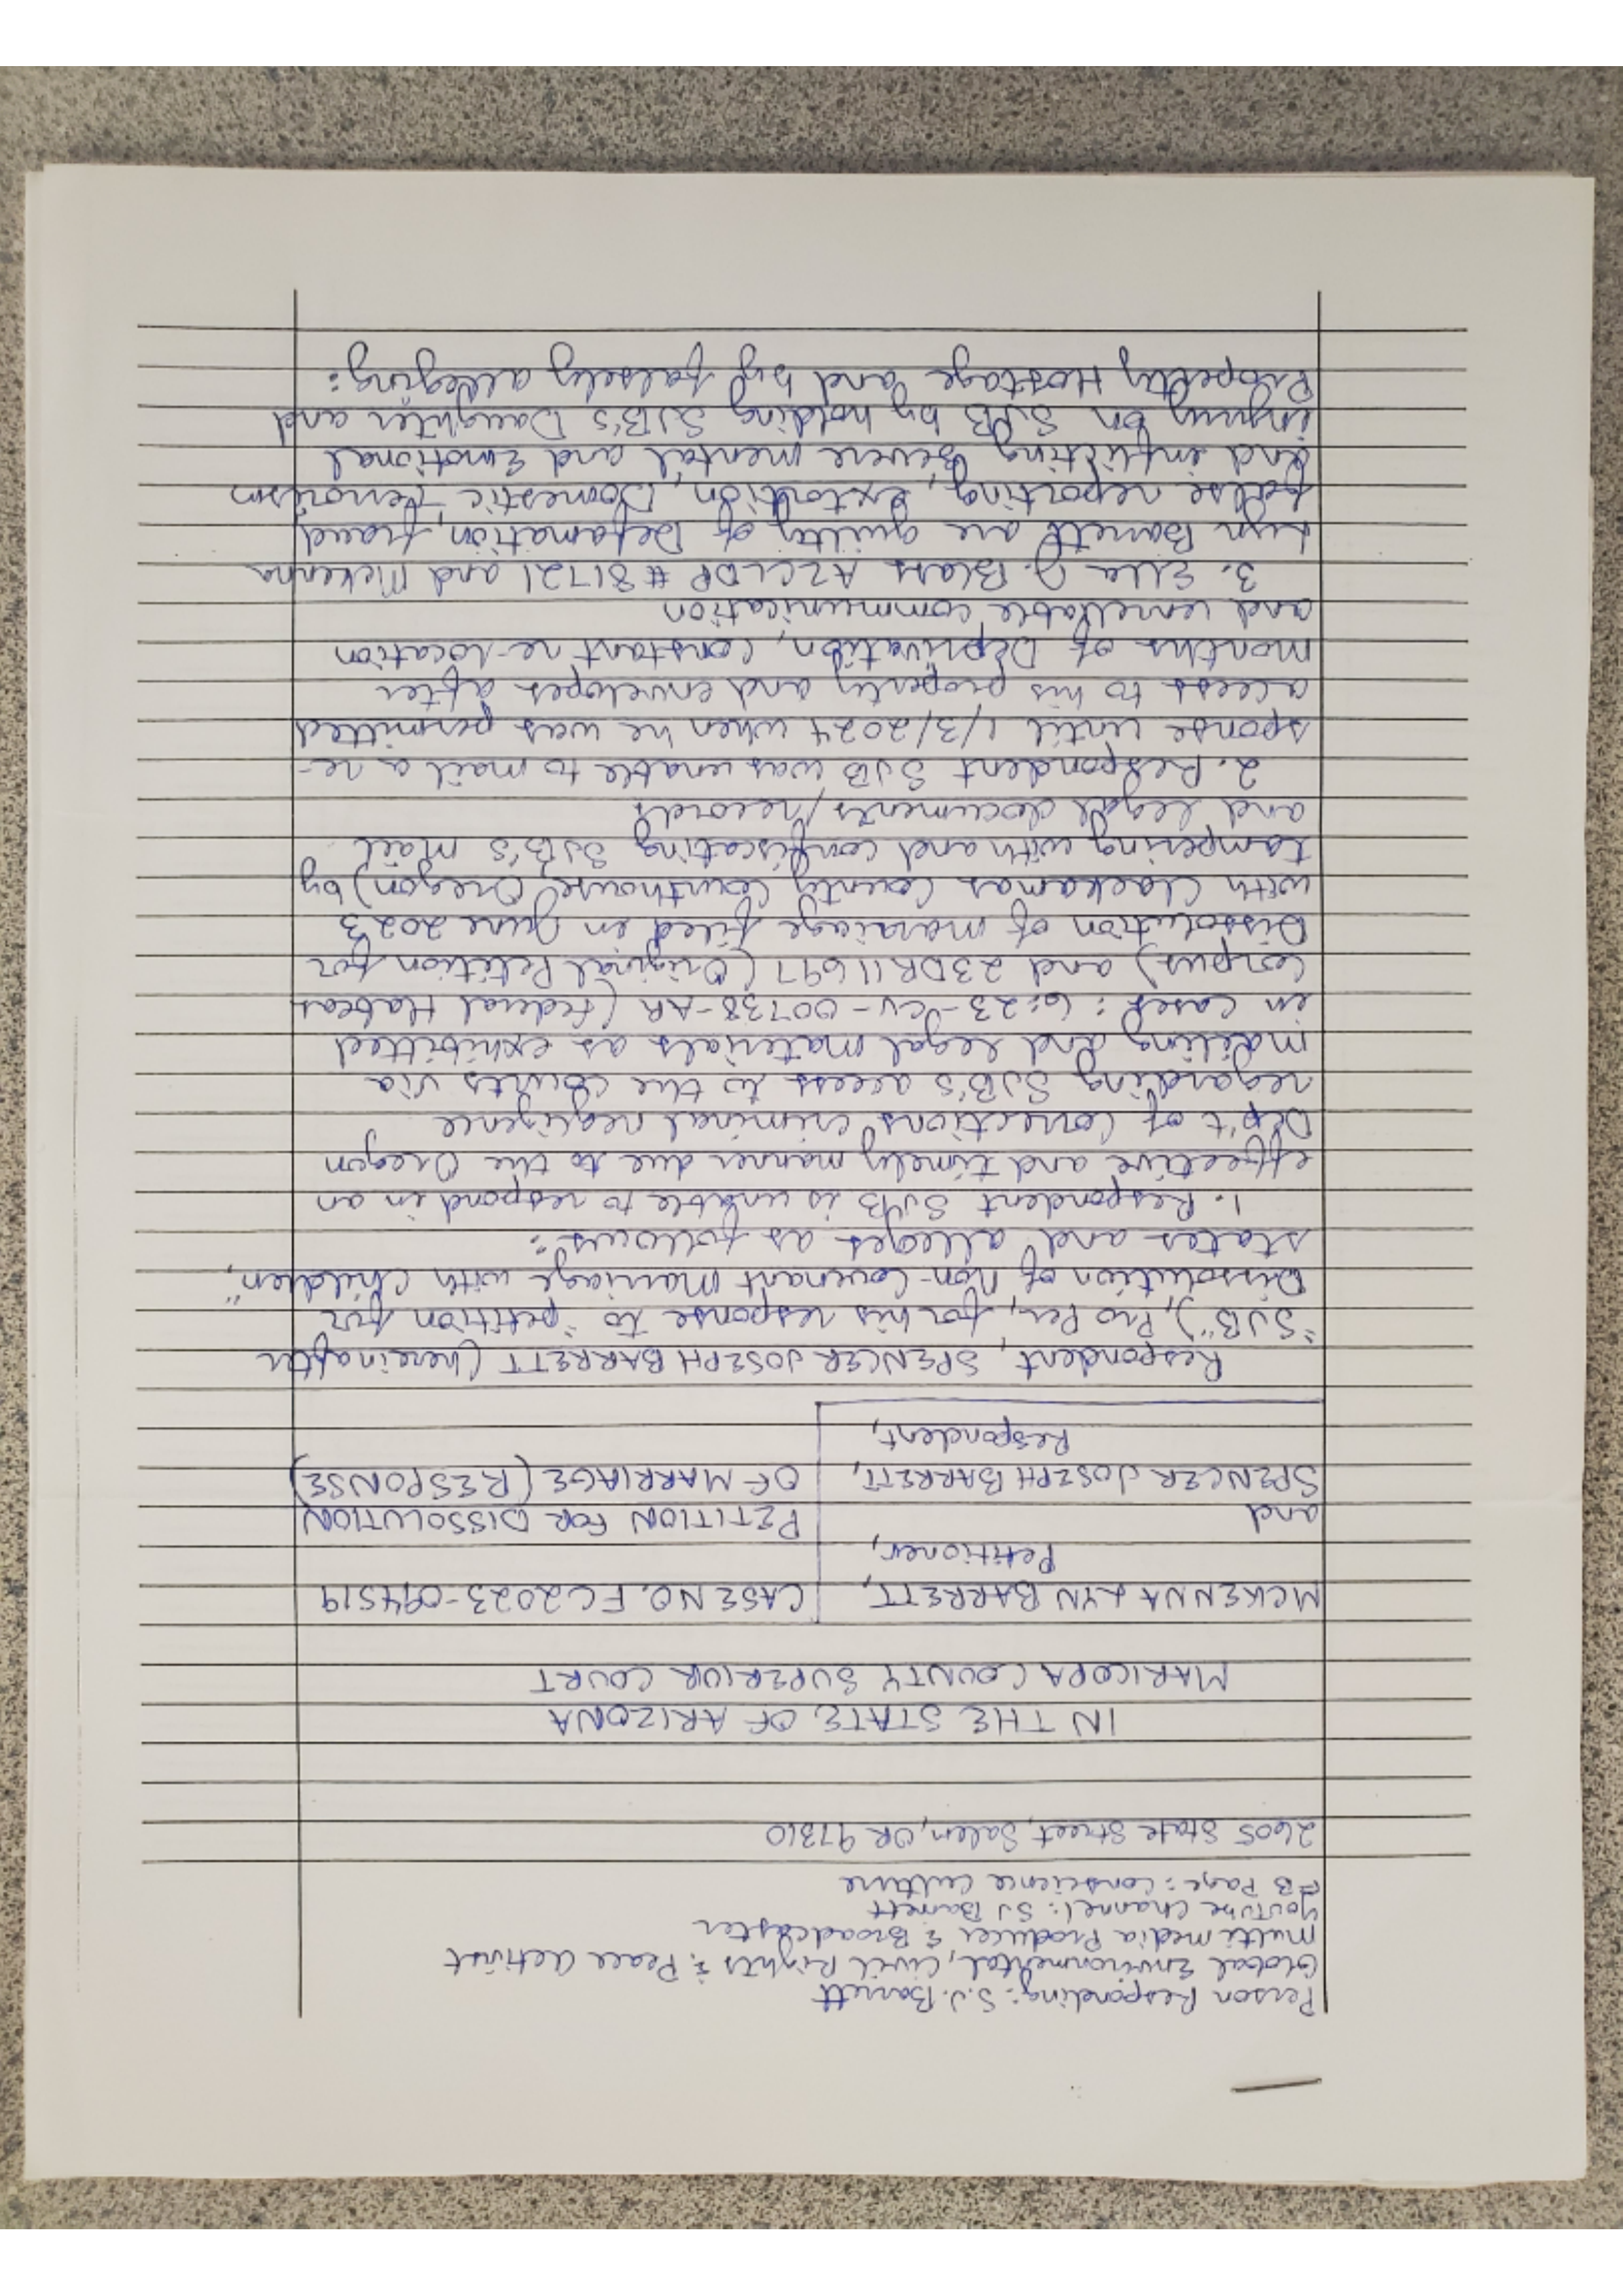 Person Responding: S.J. Barrett
Global Environmental, Civil Rights & Peace Activist
Multimedia Producer & Broadcaster
YouTube Channel: SJ Barrett
FB Page: Conscience Culture
2605 State Street, Salem, OR 97310
IN THE STATE OF ARIZONA
MARICOPA COUNTY SUPERIOR COURT
MCKENNA LYN BARRETT, CASE NO. FC2023-094519
Petitioner,
and PETITION FOR DISSOLUTION
SPENCER JOSEPH BARRETT, OF MARRIAGE (RESPONSE)
Respondent,
Respondent, SPENCER JOSEPH BARRETT (hereinafter
"SJB"), Pro Per, for his response to "petition for
Dissolution of Non-Covenant Marriage with Children",
states and alleges as follows:
1. Respondent SJB is unable to respond in an
effective and timely manner due to the Oregon
Dep't of Corrections criminal negligence
regarding SJB's access to the courts via
mailing and legal materials as exhibitted
in cases: 6:23-cv-00738-AR (Federal Habeas
Corpus) and 23DR11697 (Original Petition for
Dissolution of marriage filed in June 2023
with Clackamas County Courthouse, Oregon) by
tampering with and confiscating SJB's mail
and legal documents/records
2. Respondent SJB was unable to mail a re-
sponse until 1/3/2024 when he was permitted
access to his property and envelopes after
months of Deprivation, constant re-location
and unreliable communication
3. Ella J. Blass AZCLDP #81721 and McKenna
Lyn Barrett are guilty of Defamation, fraud,
false reporting, extortion, Domestic Terrorism
and inflicting severe mental and Emotional
injury on SJB by holding SJB's Daughter and
Property Hostage and by falsely alleging: